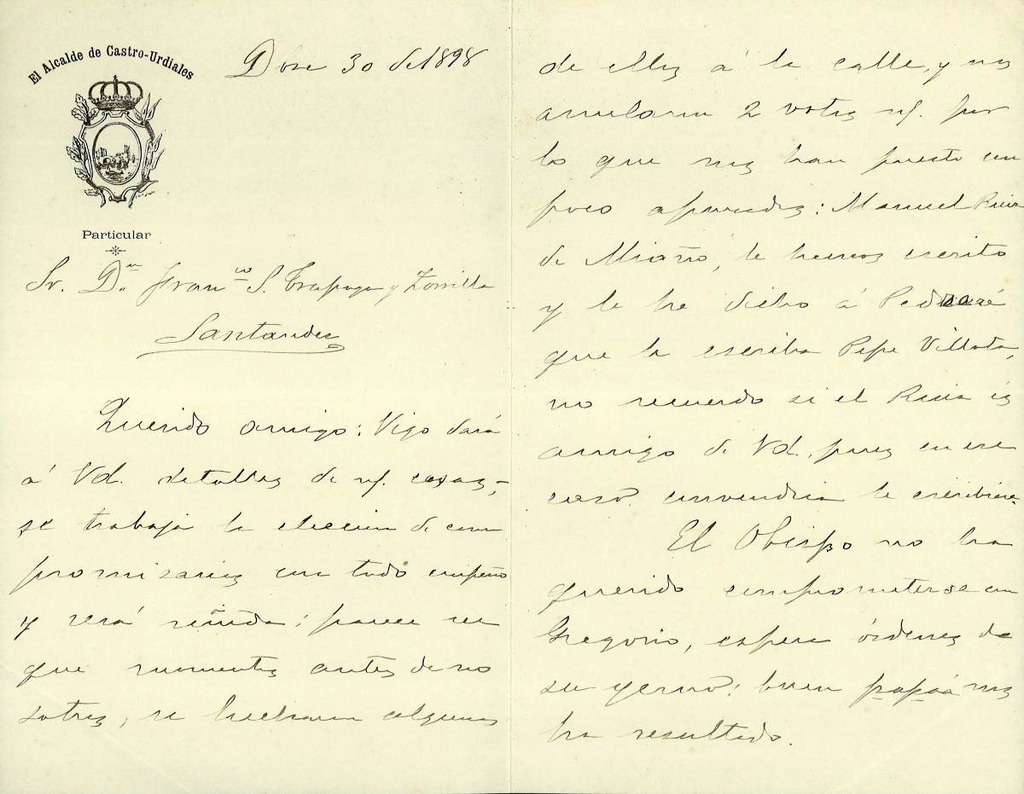 El Alcalde de Castro-Urdiales
30 de 1898
Particular
Sr. Dn. Franco. S. Trapaga y Zorrilla
Santander
Querido amigo: Vijo dará
á Vd. detalles de nf. cosas,
se trabaja la elección de com
promisarios con todo empeño
y será reñida: parece ser
que momentos antes de no
sotros, se hecharon algunos
de ellos á la calle, y nos
anularon 2 votos nf. por
lo que nos han puesto en
poco apurados: Manuel
de Miaño, le hemos escrito
y le he dicho á
que le escriba Pepe Villota,
no recuerdo si el es
amigo de Vd. pues en ese
caso convendria le escribiera.
El Obispo no ha
querido comprometerse con
Gregorio, espera órdenes de
su yerno; buen papá nos
ha resultado.